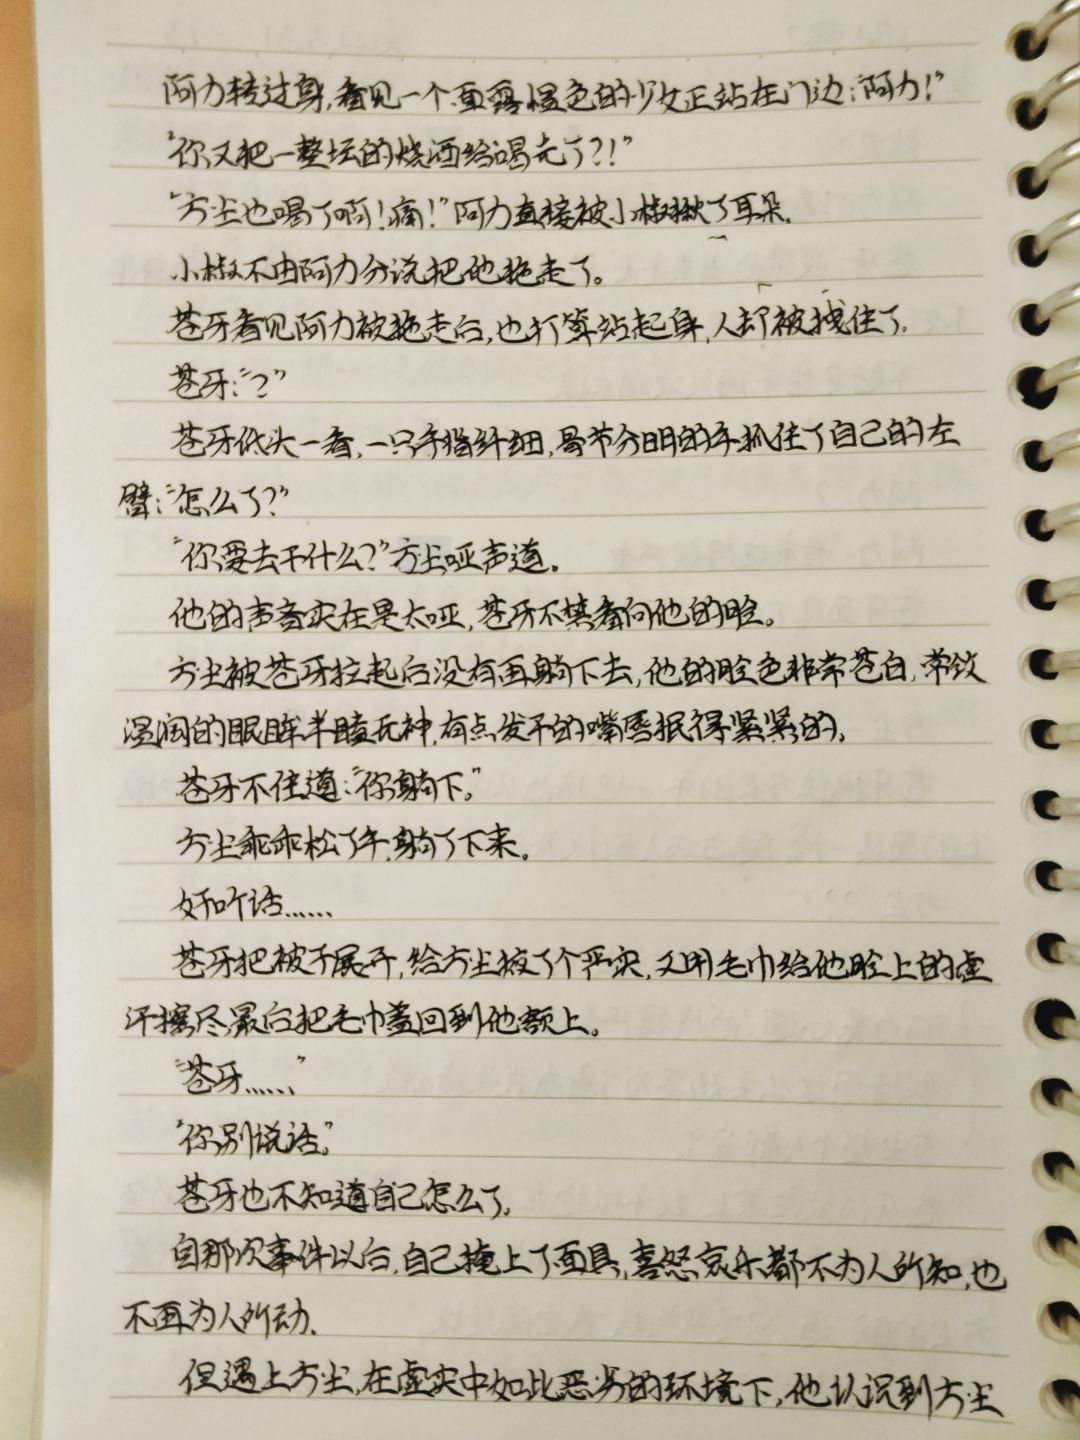 阿力转过身,看见一个面露愠色的少女正站在门边:"阿力!"
"你又把一整坛的烧酒给喝光了?!"
"方尘也喝了啊!痛!"阿力直接被小椒揪了耳朵.
小椒不由阿力分说把他拖走了。
苍牙看见阿力被拖走后,也打算站起身,人却被拽住了.
苍牙:"?"
苍牙低头一看,一只手指纤细,骨节分明的手抓住了自己的左
臂:"怎么了?"
"你要去干什么?"方尘哑声道。
他的声音实在是太哑,苍牙不禁看向他的脸。
方尘被苍牙拉起后没有再躺下去,他的脸色非常苍白,常饮
湿润的眼眸半瞌无神,有点发干的嘴唇抿得紧紧的.
苍牙不住道:"你躺下."
方尘乖乖松了手,躺了下来.
好听话......
苍牙把被子展开,给方尘掖了个严实,又用毛巾给他脸上的虚
汗擦尽最后把毛巾盖回到他额上。
"苍牙......"
"你别说话."
苍牙也不知道自己怎么了.
自那次事件以后,自己掩上了面具,喜怒哀乐都不为人所知,也
不再为人所动.
但遇上方尘,在虚实中如此恶劣的环境下,他认识到方尘